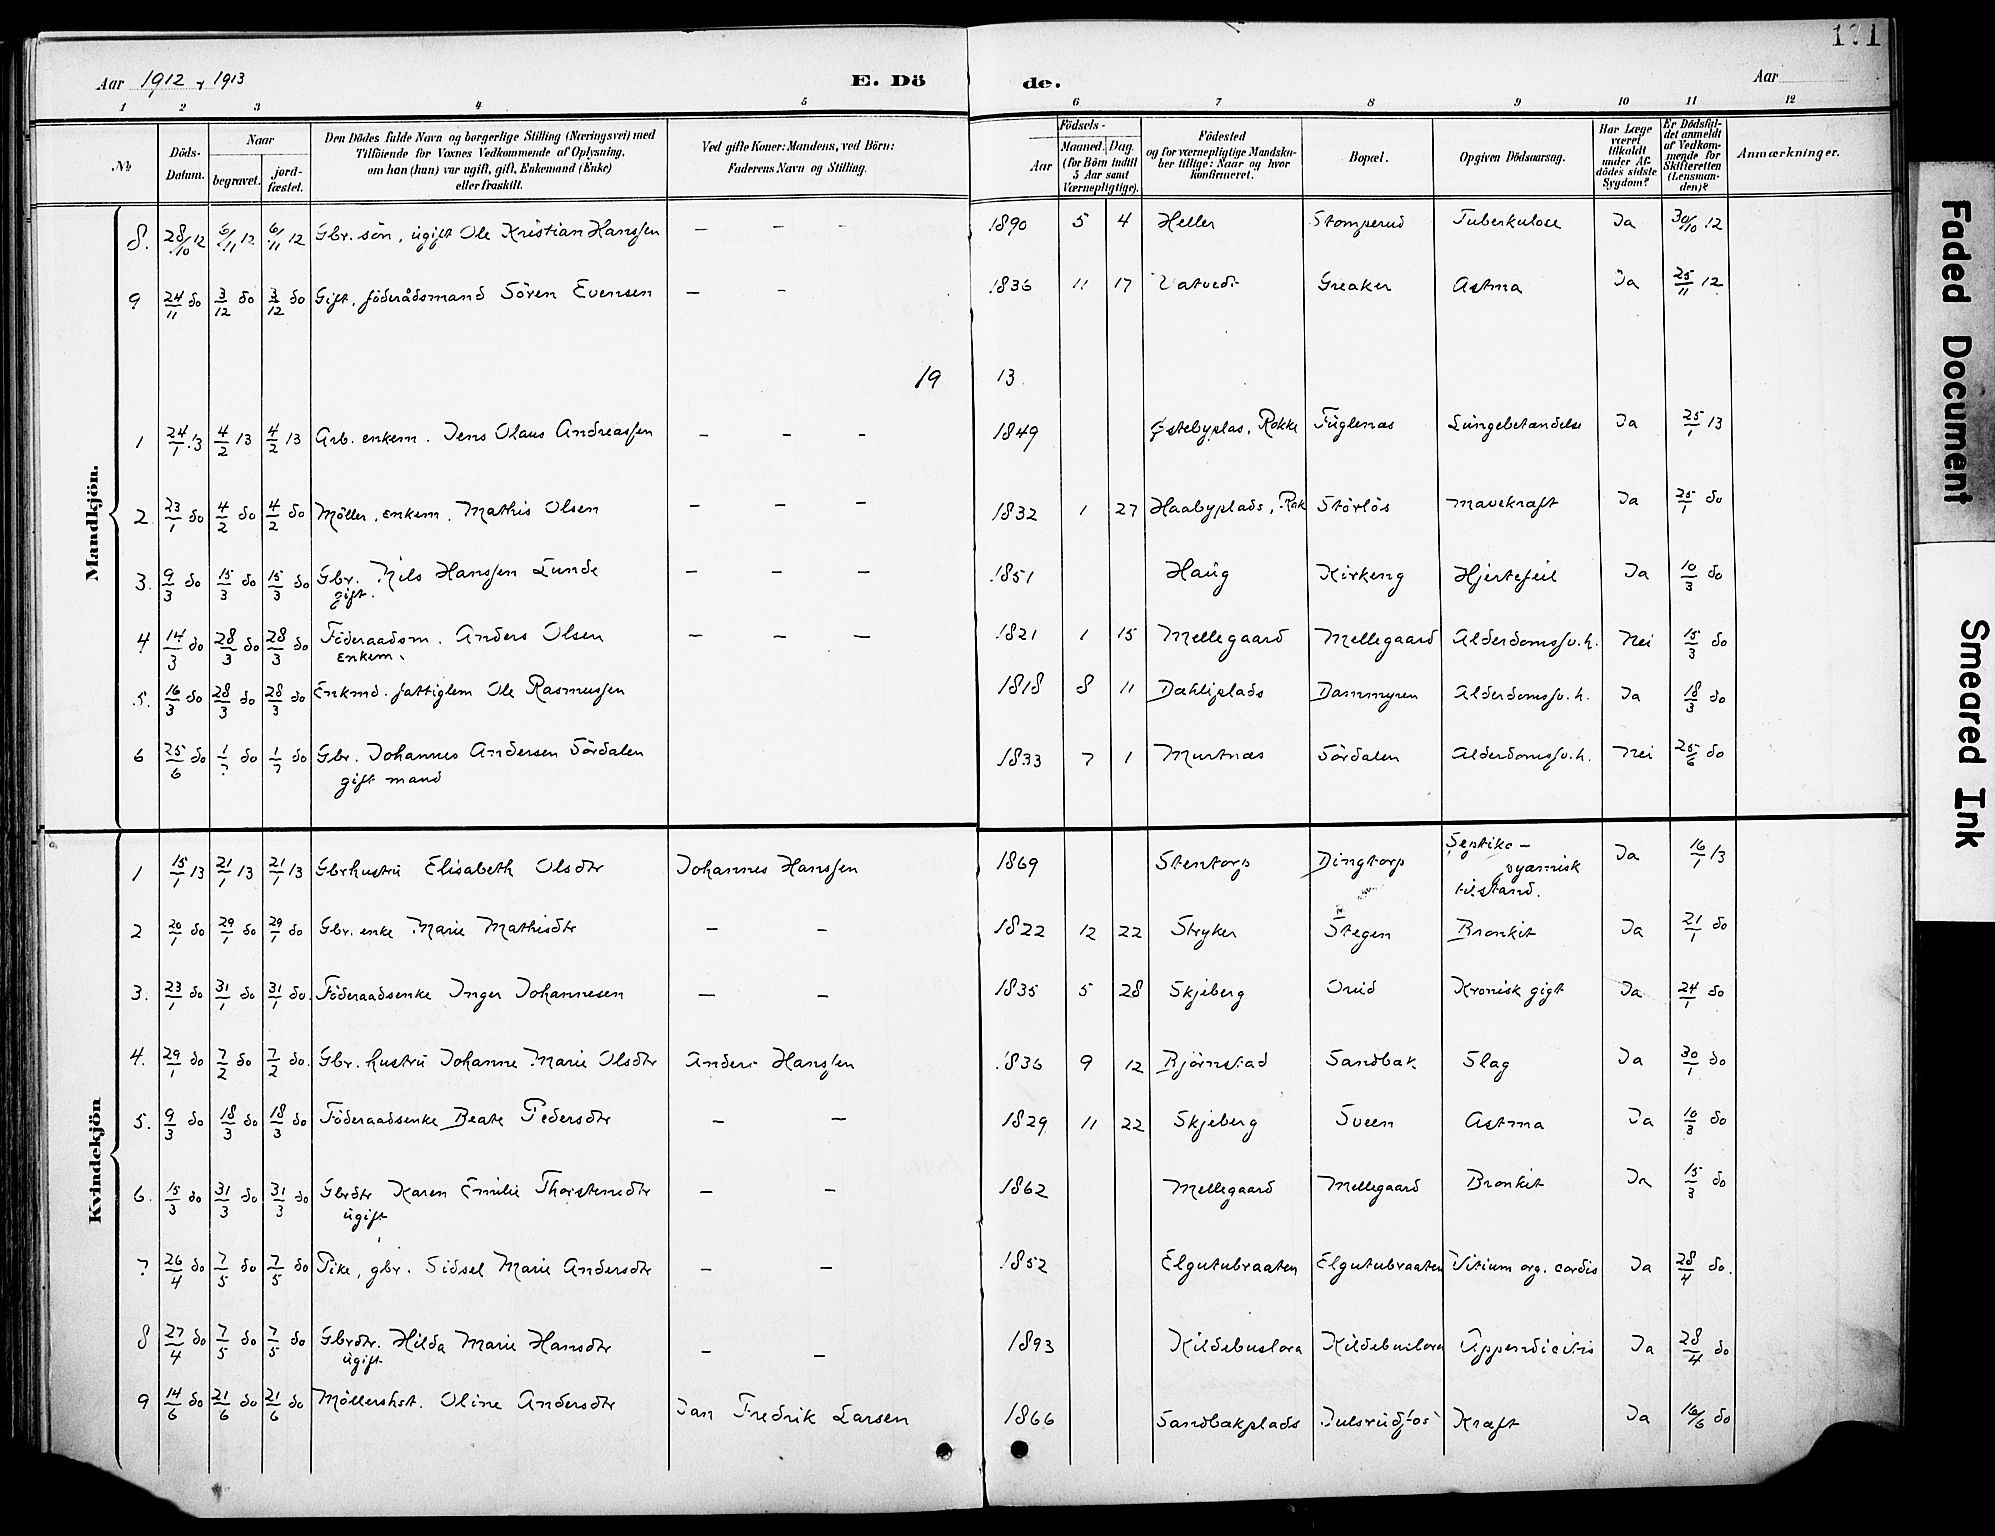 171
Aar 1912 & 1913 E. Dö de. Aar
1 2 3 4 5 6 7 8 9 10 11 12
№ Döds-Datum. Naar begravet. jord-fæstet. Den Dödes fulde Navn og borgerlige Stilling (Næringsvei) med Tilföiende for Voxnes Vedkommende af Oplysning, om han (hun) var ugift, gift, Enkemand (Enke) eller fraskilt. Ved gifte Koner: Mandens, ved Börn: Faderens Navn og Stilling. Födsels- Aar Maaned. Dag. (for Börn indtil 5 Aar samt Værnepligtige). Födested og for værnepligtige Mandska-ber tillige: Naar og hvor konfirmeret. Bopæl. Opgiven Dödsaarsag. Har Læge været tilkaldt under Af-dödes sidste Sygdom? Er Dödsfal-det anmeldt af Vedkom-mende for Skifteretten (Lensman-den)? Anmærkninger.
Mandkjön.
8. 28/10 12 6/11 12 6/11 12 Gbr. sön, ugift Ole Kristian Hanssen – – – 1890 5 4 Heller Stomperud Tuberkulose Ja 30/10 12
9 24/11 do 3/12 do 3/12 do Gift, föderådsmand Sören Evensen – – 1836 11 17 Vatvedt Greaker Astma Ja 25/11 12
19 13
1 24/1 13 4/2 13 4/2 13 Arb. enkem. Jens Olaus Andreassen – – – 1849 Östebyplas, Rokke Fuglenas Lungebetændelse Ja 25/1 13
2 23/1 do 4/2 do 4/2 do Möller, enkem. Mathis Olsen – – – 1832 1 27 Haabyplads, Rok Störlös Mavekraft Ja 25/1 do
3. 9/3 do 15/3 do 15/3 do Gbr. Nils Hanssen Lunde – – – 1851 Haug Kirkeng Hjertefeil Ja 10/3 do
gift.
4 14/3 do 28/3 do 28/3 do Föderaadsm. Anders Olsen – – – 1821 1 15 Mellegaard Mellegaard Alderdomssv.h. Nei 15/3 do
enkem.
5. 16/3 do 28/3 do 28/3 do Enkmd. fattiglem Ole Rasmussen 1818 8 11 Dæhliplads Dammyren Alderdomssv.h. Ja 18/3 do
6 25/6 do 1/7 do 1/7 do Gbr. Johannes Andersen Sördalen 1833 7 1 Murtnæs Sördalen Alderdomssv.h. Nei 25/6 do
gift mand
Kvindekjön
1 15/1 13 21/1 13 21/1 13 Gbrhustru Elisabeth Olsdtr Johannes Hanssen 1869 Stentorp Dingtorp Septiko-pyæmisk tilstand. Ja 16/1 13
2 20/1 do 29/1 do 29/1 do Gbr. enke Marie Mathisdtr – – 1822 12 22 Stryker Stegen Bronkit Ja 21/1 do
3. 23/1 do 31/1 do 31/1 do. Föderaadsenke Inger Johannesen – – 1835 5 28 Skjeberg Oruid Kronisk gigt Ja 24/1 do
4. 29/1 do 7/2 do 7/2 do. Gbr. hustru Johanne Marie Olsdtr Anders Hanssen 1836 9 12 Björnstad Sandbak Slag Ja 30/1 do
5. 9/3 do 18/3 do 18/3 do Föderaadsenke Beate Pedersdtr – – 1829 11 22 Skjeberg Sveen Astma Ja 10/3 do
6. 15/3 do 31/3 do. 31/3 do Gbrdtr Karen Emilie Thorstensdtr – – 1862 Mellegaard Mellegaard Bronkit Ja 15/3 do
ugift
7 26/4 do 7/5 do 7/5 do Pike, gbr. Sidsel Marie Andersdtr – – 1852 Elgutubraaten Elgutubraaten Vitium org. cordis Ja 28/4 do.
8 27/4 do 7/5 do 7/5 do Gbrdtr. Hilda Marie Hansdtr – – 1893 Kildebuslora Kildebuslora Appendicitis Ja 28/4 do
ugift
9 14/6 do 21/6 do 21/6 do Möllershst. Oline Andersdtr Jan Fredrik Larsen 1866 Sandbakplads Julsrudfos Kræft Ja 16/6 do
Faded Document
Smeared Ink